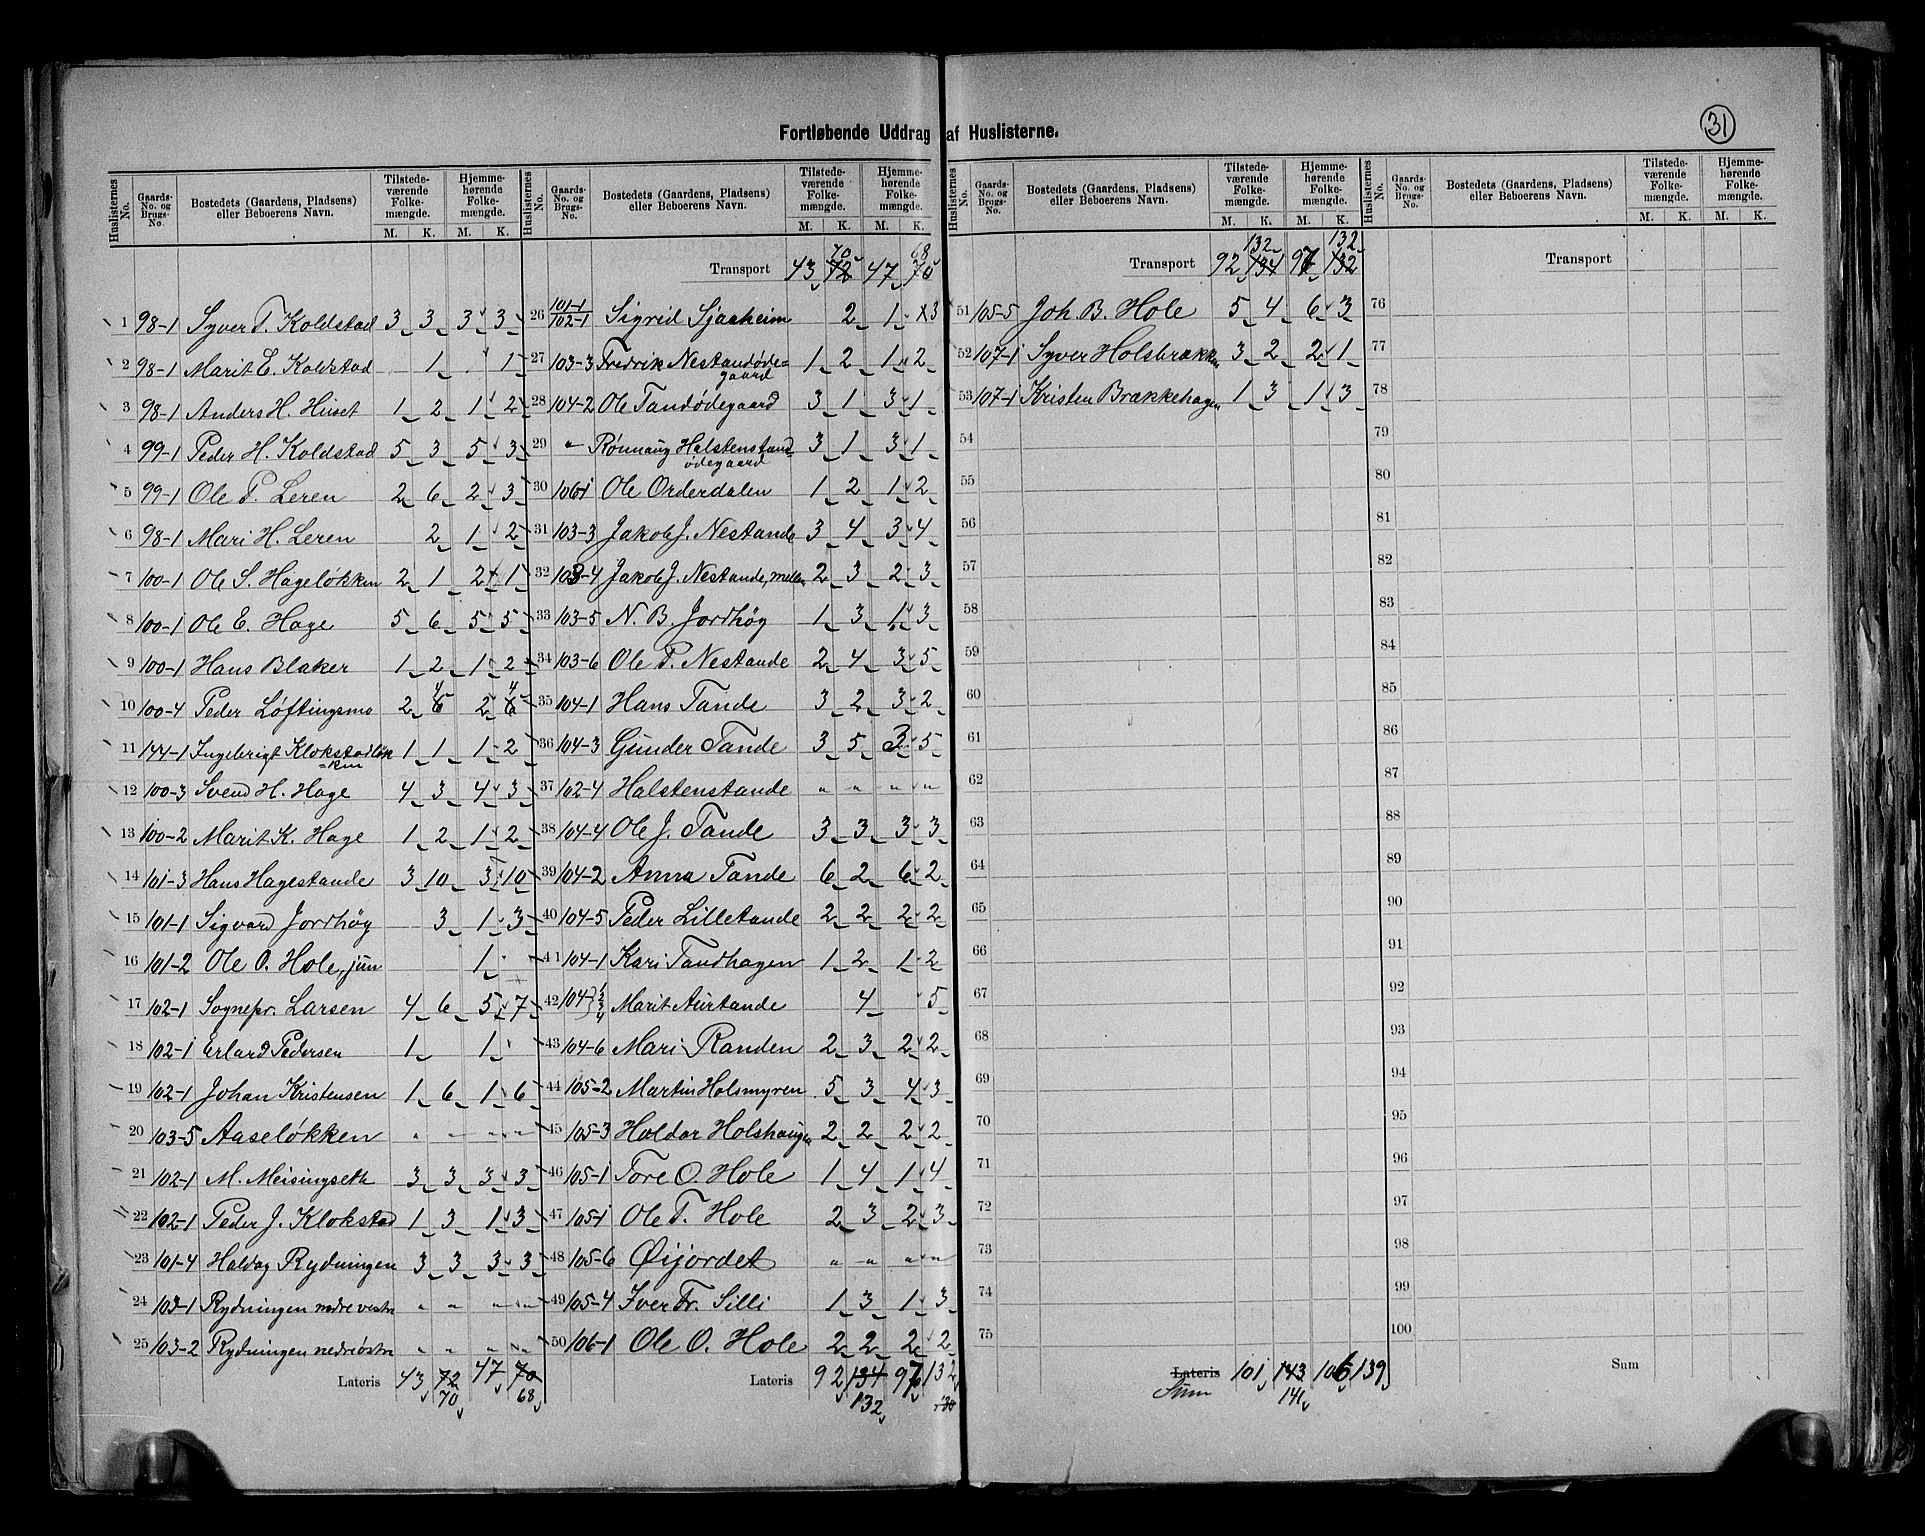 31
Fortløbende Uddrag af Huslisterne.
Huslisternes No. Gaards-No. og Brugs-No. Bostedets (Gaardens, Pladsens) eller Beboerens Navn. Tilstedeværende Folkemængde. M. K. Hjemmehørende Folkemængde. M. K.
1 98-1 Syver T. Koldstad 3 3 3 3
2 98-1 Marit E. Koldstad 1 1
3 98-1 Anders H. Huset 1 2 1 2
4 99-1 Peder H. Koldstad 5 3 5 3
5 99-1 Ole P. Leren 2 6 2 3
6 98-1 Mari H. Leren 2 1 2
7 100-1 Ole S. Hageløkken 2 1 2 1
8 100-1 Ole E. Hage 5 6 5 5
9 100-1 Hans Blaker 1 2 1 2
10 100-4 Peder Løftingsmo 2 4 2 4
11 144-1 Ingebrigt Klokstadløk=ken 1 1 1 2
12 100-3 Svend H. Hage 4 3 4 3
13 100-2 Marit K. Hage 1 2 1 2
14 101-3 Hans Hagestande 3 10 3 10
15 101-1 Sigvard Jordhøy 3 1 3
16 101-2 Ole O. Hole, jun 1
17 102-1 Sognepr. Larsen 4 6 5 7
18 102-1 Erland Pedersen 1 1
19 102-1 Johan Kristensen 1 6 1 6
20 103-5 Aaseløkken " " " "
21 102-1 M. Meisingseth 3 3 3 3
22 102-1 Peder J. Klokstad 1 3 1 3
23 101-4 Haldog Rydningen 3 3 3 3
24 103-1 Rydningen nedre vestre " " " "
25 103-2 Rydningen nedre østre " " " "
Lateris 43 72 47 70
70 68
Huslisternes No. Gaards-No. og Brugs-No. Bostedets (Gaardens, Pladsens) eller Beboerens Navn. Tilstedeværende Folkemængde. M. K. Hjemmehørende Folkemængde. M. K.
70 68
Transport 43 72 47 70
26 101-1 102-1 Sigrid Sjaaheim 2 1 x3
27 103-3 Fredrik Nestandøde=gaard 1 2 1 2
28 104-2 Ole Tandødegaard 3 1 3 1
29 " Rønnaug Halstenstand=ødegaard 3 1 3 1
30 106-1 Ole Orderdalen 1 2 1 2
31 103-3 Jakob J. Nestande 3 4 3 4
32 103-4 Jakob J. Nestande, mellem 2 3 2 3
33 103-5 N. B. Jordhøy 1 3 1 3
34 103-6 Ole P. Nestande 2 4 3 5
35 104-1 Hans Tande 3 2 3 2
36 104-3 Gunder Tande 3 5 3 5
37 102-4 Halstenstande " " " "
38 104-4 Ole J. Tande 3 3 3 3
39 104-2 Anna Tande 6 2 6 2
40 104-5 Peder Lilletande 2 2 2 2
41 104-1 Kari Tandhagen 1 2 1 2
42 104 Marit Aurtande 4 5
43 104-6 Mari Randen 2 3 2 2
44 105-2 Martin Holsmyren 5 3 4 3
45 105-3 Haldor Holshaugen 2 2 2 2
46 105-1 Tore O. Hole 1 4 1 4
47 105-1 Ole T. Hole 2 3 2 3
48 105-6 Øijordet " " " "
49 105-4 Iver Fr. Silli 1 3 1 3
50 106-1 Ole O. Hole 2 2 2 2
Lateris 92 134 97 132
132
Huslisternes No. Gaards-No. og Brugs-No. Bostedets (Gaardens, Pladsens) eller Beboerens Navn. Tilstedeværende Folkemængde. M. K. Hjemmehørende Folkemængde. M. K.
132 132
Transport 92 134 97 132
51 105-5 Joh B. Hole 5 4 6 3
52 107-1 Syver Holsbrækken 3 2 2 1
53 107-1 Kristen Brækkehagen 1 3 1 3
54
55
56
57
58
59
60
61
62
63
64
65
66
67
68
69
70
71
72
73
74
75
Lateris 101 143 106 139
Sum 141
Huslisternes No. Gaards-No. og Brugs-No. Bostedets (Gaardens, Pladsens) eller Beboerens Navn. Tilstedeværende Folkemængde. M. K. Hjemmehørende Folkemængde. M. K.
Transport
76
77
78
79
80
81
82
83
84
85
86
87
88
89
90
91
92
93
94
95
96
97
98
99
100
Sum